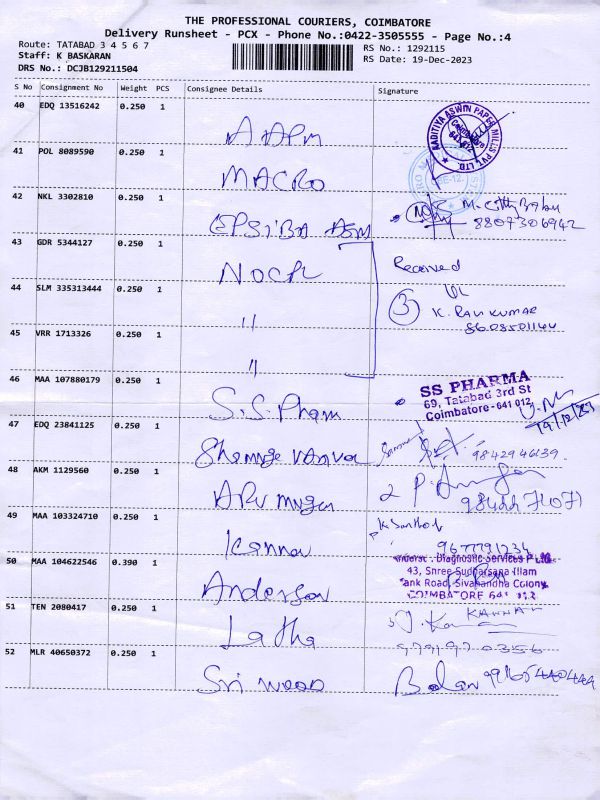 THE PROFESSIONAL COURIERS, COIMBATORE
Delivery Runsheet - PCX - Phone No.:0422-3505555 - Page No.:4
Route: TATABAD 3 4 5 6 7
Staff: K BASKARAN
DRS No.: DCJB129211504
RS No.: 1292115
RS Date: 19-Dec-2023
S No Consignment No Weight PCS Consignee Details Signature
40 EDQ 13516242 0.250 1
AAPM
AADITIYA ASWIN PAPER MILLS PVT. LTD.
41 POL 8089590 0.250 1
MACRO
42 NKL 3302810 0.250 1
8807306942
43 GDR 5344127 0.250 1
Received
44 SLM 335313444 0.250 1
"
3
K. RAVI KUMAR
45 VRR 1713326 0.250 1
"
46 MAA 107880179 0.250 1
S.S. Pharm
SS PHARMA
69, Tatabad 3rd St
Coimbatore - 641 012
19/12/23
47 EDQ 23841125 0.250 1
9842946139.
48 AKM 1129560 0.250 1
Arumugam
49 MAA 103324710 0.250 1
Kannan
9677791234
50 MAA 104622546 0.390 1
Anderson
Diagnostic Services P Ltd
43, Shree Sudharsana Illam
Tank Road, Sivanandha Colony
COIMBATORE 641 012
51 TEN 2080417 0.250 1
Latha
KANNAN
52 MLR 40650372 0.250 1
Sri
Balan